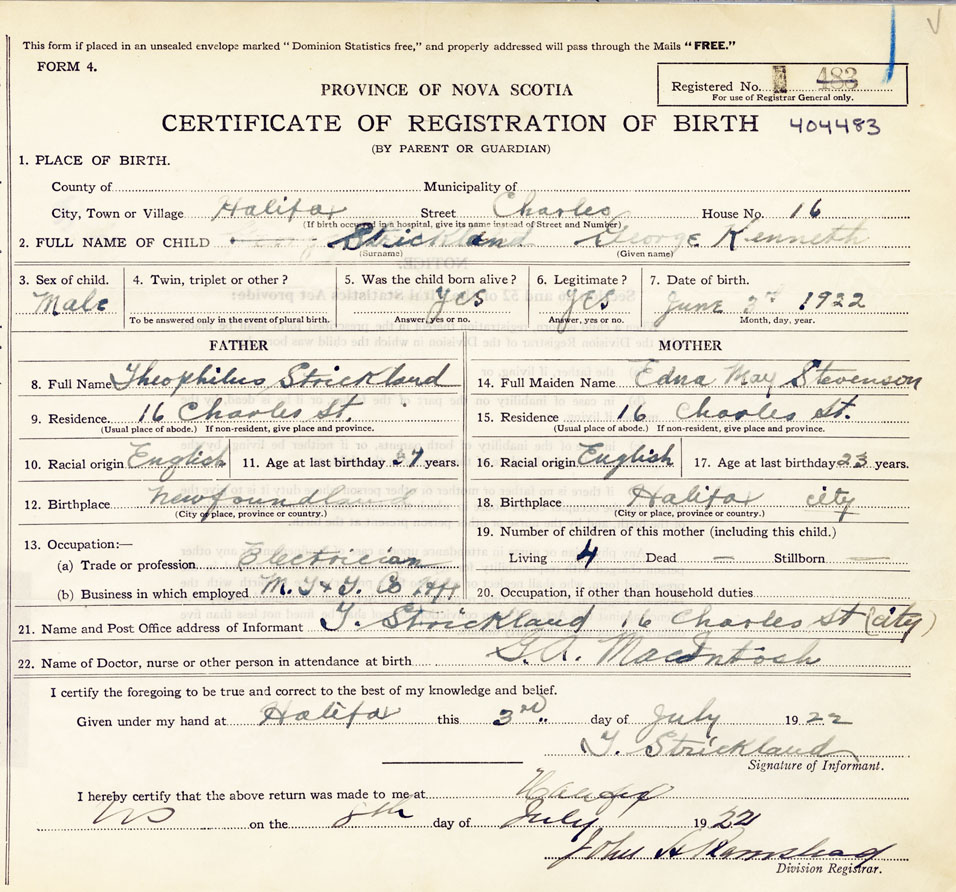 This form if placed in an unsealed envelope marked "Dominion Statistics free," and properly addressed will pass through the Mails "FREE."
FORM 4.
Registered No. 483
For use of Registrar General only.
PROVINCE OF NOVA SCOTIA
CERTIFICATE OF REGISTRATION OF BIRTH 404483
(BY PARENT OR GUARDIAN)
1. PLACE OF BIRTH.
County of Municipality of
City, Town or Village Halifax Street Charles House No. 16
(If birth occurred in a hospital, give its name instead of Street and Number)
2. FULL NAME OF CHILD Strickland George Kenneth
(Surname) (Given name)
3. Sex of child. 4. Twin, triplet or other? 5. Was the child born alive? 6. Legitimate? 7. Date of birth.
Male Yes Yes June 1922
To be answered only in the event of plural birth. Answer, yes or no. Answer, yes or no. Month, day, year.
FATHER MOTHER
8. Full Name Theophilus Strickland 14. Full Maiden Name Edna May Stevenson
9. Residence. 16 Charles St. 15. Residence 16 Charles St.
(Usual place of abode.) If non-resident, give place and province. (Usual place of abode.) If non-resident, give place and province.
10. Racial origin English 11. Age at last birthday years. 16. Racial origin English 17. Age at last birthday 23 years.
12. Birthplace Newfoundland 18. Birthplace Halifax city
(City or place, province or country.) (City or place, province or country.)
19. Number of children of this mother (including this child.)
13. Occupation:—
(a) Trade or profession Electrician Living 4 Dead — Stillborn —
(b) Business in which employed M. T & T. Co Hfx 20. Occupation, if other than household duties
21. Name and Post Office address of Informant T. Strickland 16 Charles St (city)
22. Name of Doctor, nurse or other person in attendance at birth G. A. MacIntosh
I certify the foregoing to be true and correct to the best of my knowledge and belief.
Given under my hand at Halifax this 3rd day of July 1922
T. Strickland
Signature of Informant.
I hereby certify that the above return was made to me at Halifax
NS on the 8th day of July 1922
John A
Division Registrar.